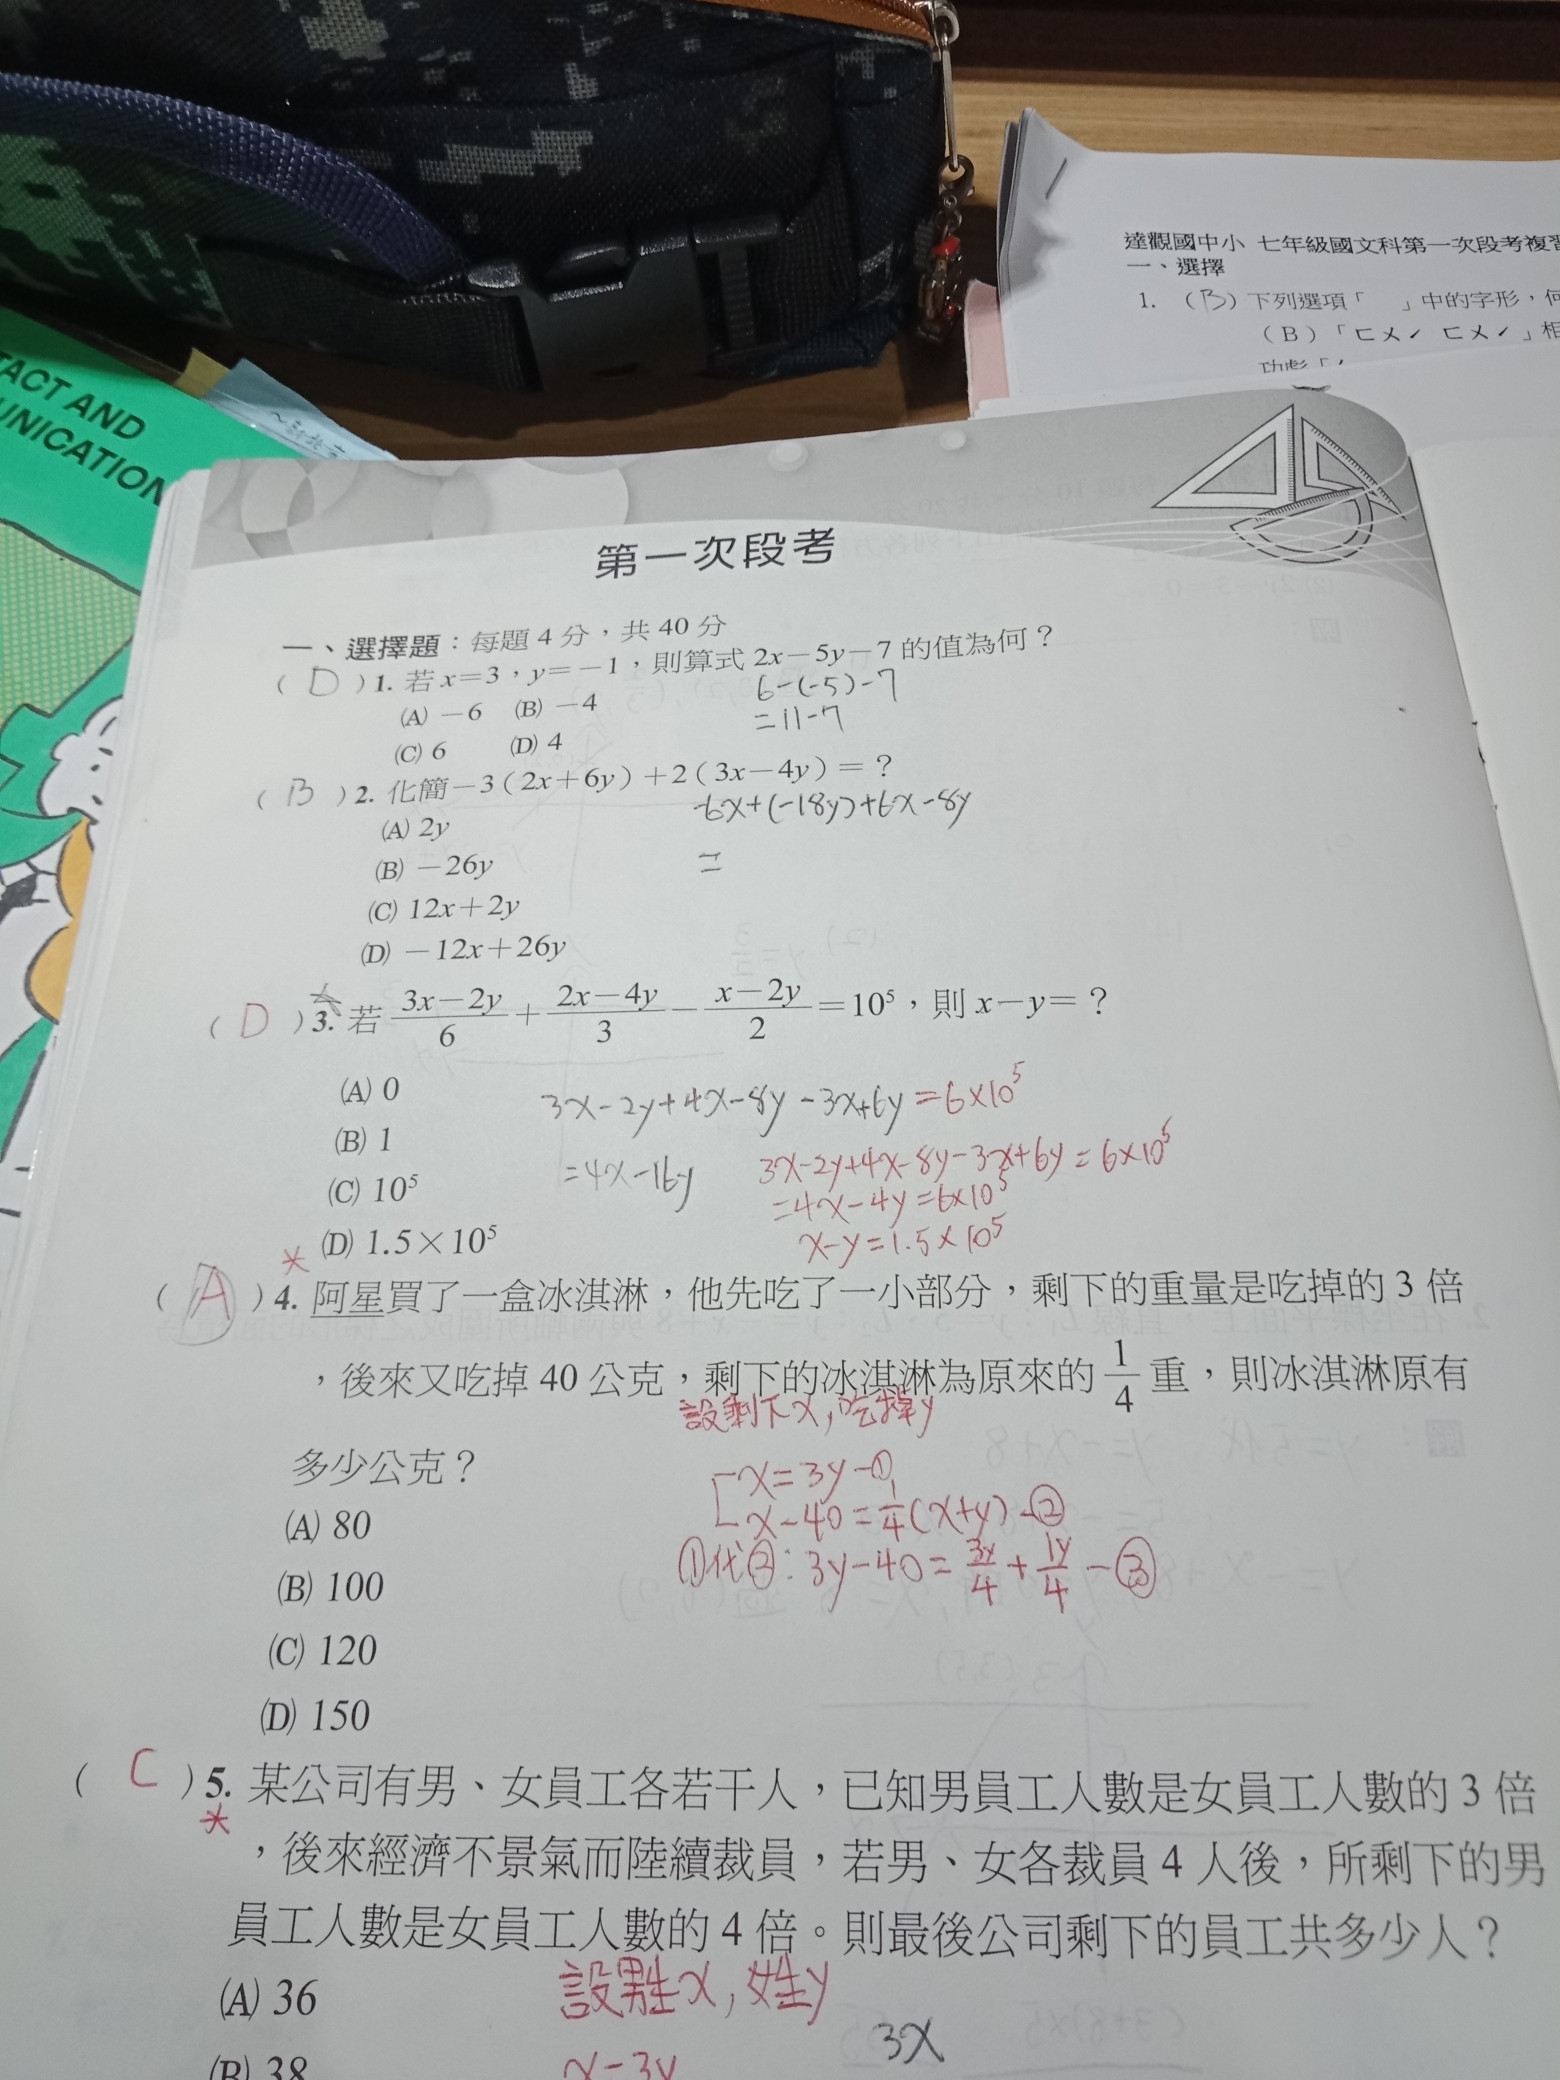 TACT AND
UNICATION
達觀國中小 七年級國文科第一次段考複習
一、選擇
1. （B）下列選項「 」中的字形，何
（B）「ㄈㄨˊ ㄈㄨˊ」相
第一次段考
一、選擇題：每題 4 分，共 40 分
（ D ）1. 若 x＝3，y＝－1，則算式 2x－5y－7 的值為何？
6-(-5)-7
(A) －6 (B) －4
=11-7
(C) 6 (D) 4
（ B ）2. 化簡－3（2x＋6y）＋2（3x－4y）＝？
-6x+(-18y)+6x-8y
(A) 2y
(B) －26y
=
(C) 12x＋2y
(D) －12x＋26y
（ D ）3. 若 \frac{3x－2y}{6}＋\frac{2x－4y}{3}－\frac{x－2y}{2}＝10⁵，則 x－y＝？
(A) 0
3x-2y+4x-8y-3x+6y=6×10⁵
(B) 1
=4x-16y
3x-2y+4x-8y-3x+6y=6×10⁵
(C) 10⁵
=4x-4y=6×10⁵
(D) 1.5×10⁵
x-y=1.5×10⁵
（ A ）4. 阿星買了一盒冰淇淋，他先吃了一小部分，剩下的重量是吃掉的 3 倍
，後來又吃掉 40 公克，剩下的冰淇淋為原來的 \frac{1}{4} 重，則冰淇淋原有
設剩下x,吃掉y
多少公克？
x=3y-①
(A) 80
x-40=\frac{1}{4}(x+y)-②
①代②:3y-40=\frac{3y}{4}+\frac{1y}{4}-③
(B) 100
(C) 120
(D) 150
（ C ）5. 某公司有男、女員工各若干人，已知男員工人數是女員工人數的 3 倍
，後來經濟不景氣而陸續裁員，若男、女各裁員 4 人後，所剩下的男
員工人數是女員工人數的 4 倍。則最後公司剩下的員工共多少人？
(A) 36
設男生x,女生y
3x
(B) 38
x=3y